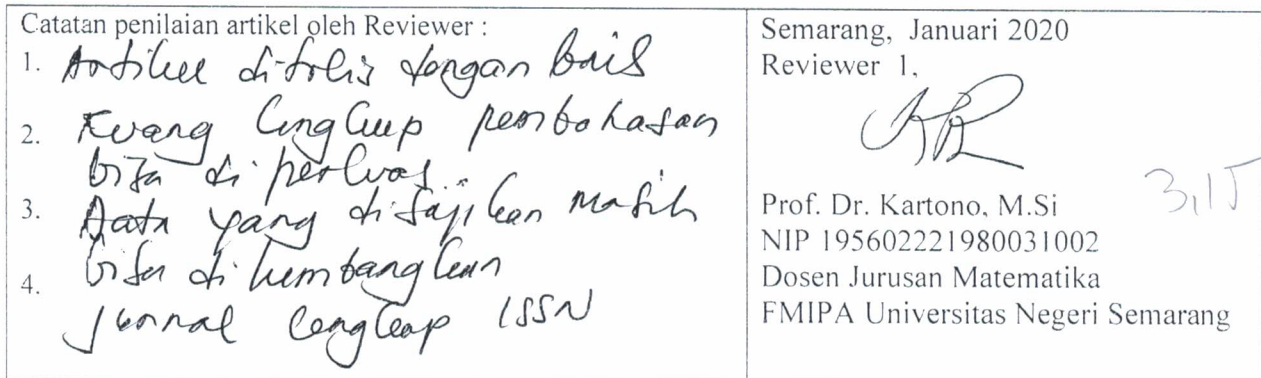 Catatan penilaian artikel oleh Reviewer :
1. Artikel ditulis dengan baik
2. Ruang lingkup pembahasan
bisa diperluas
3. Data yang disajikan masih
bisa dikembangkan
4. Jurnal lengkap ISSN
Semarang, Januari 2020
Reviewer 1,
3,15
Prof. Dr. Kartono, M.Si
NIP 195602221980031002
Dosen Jurusan Matematika
FMIPA Universitas Negeri Semarang